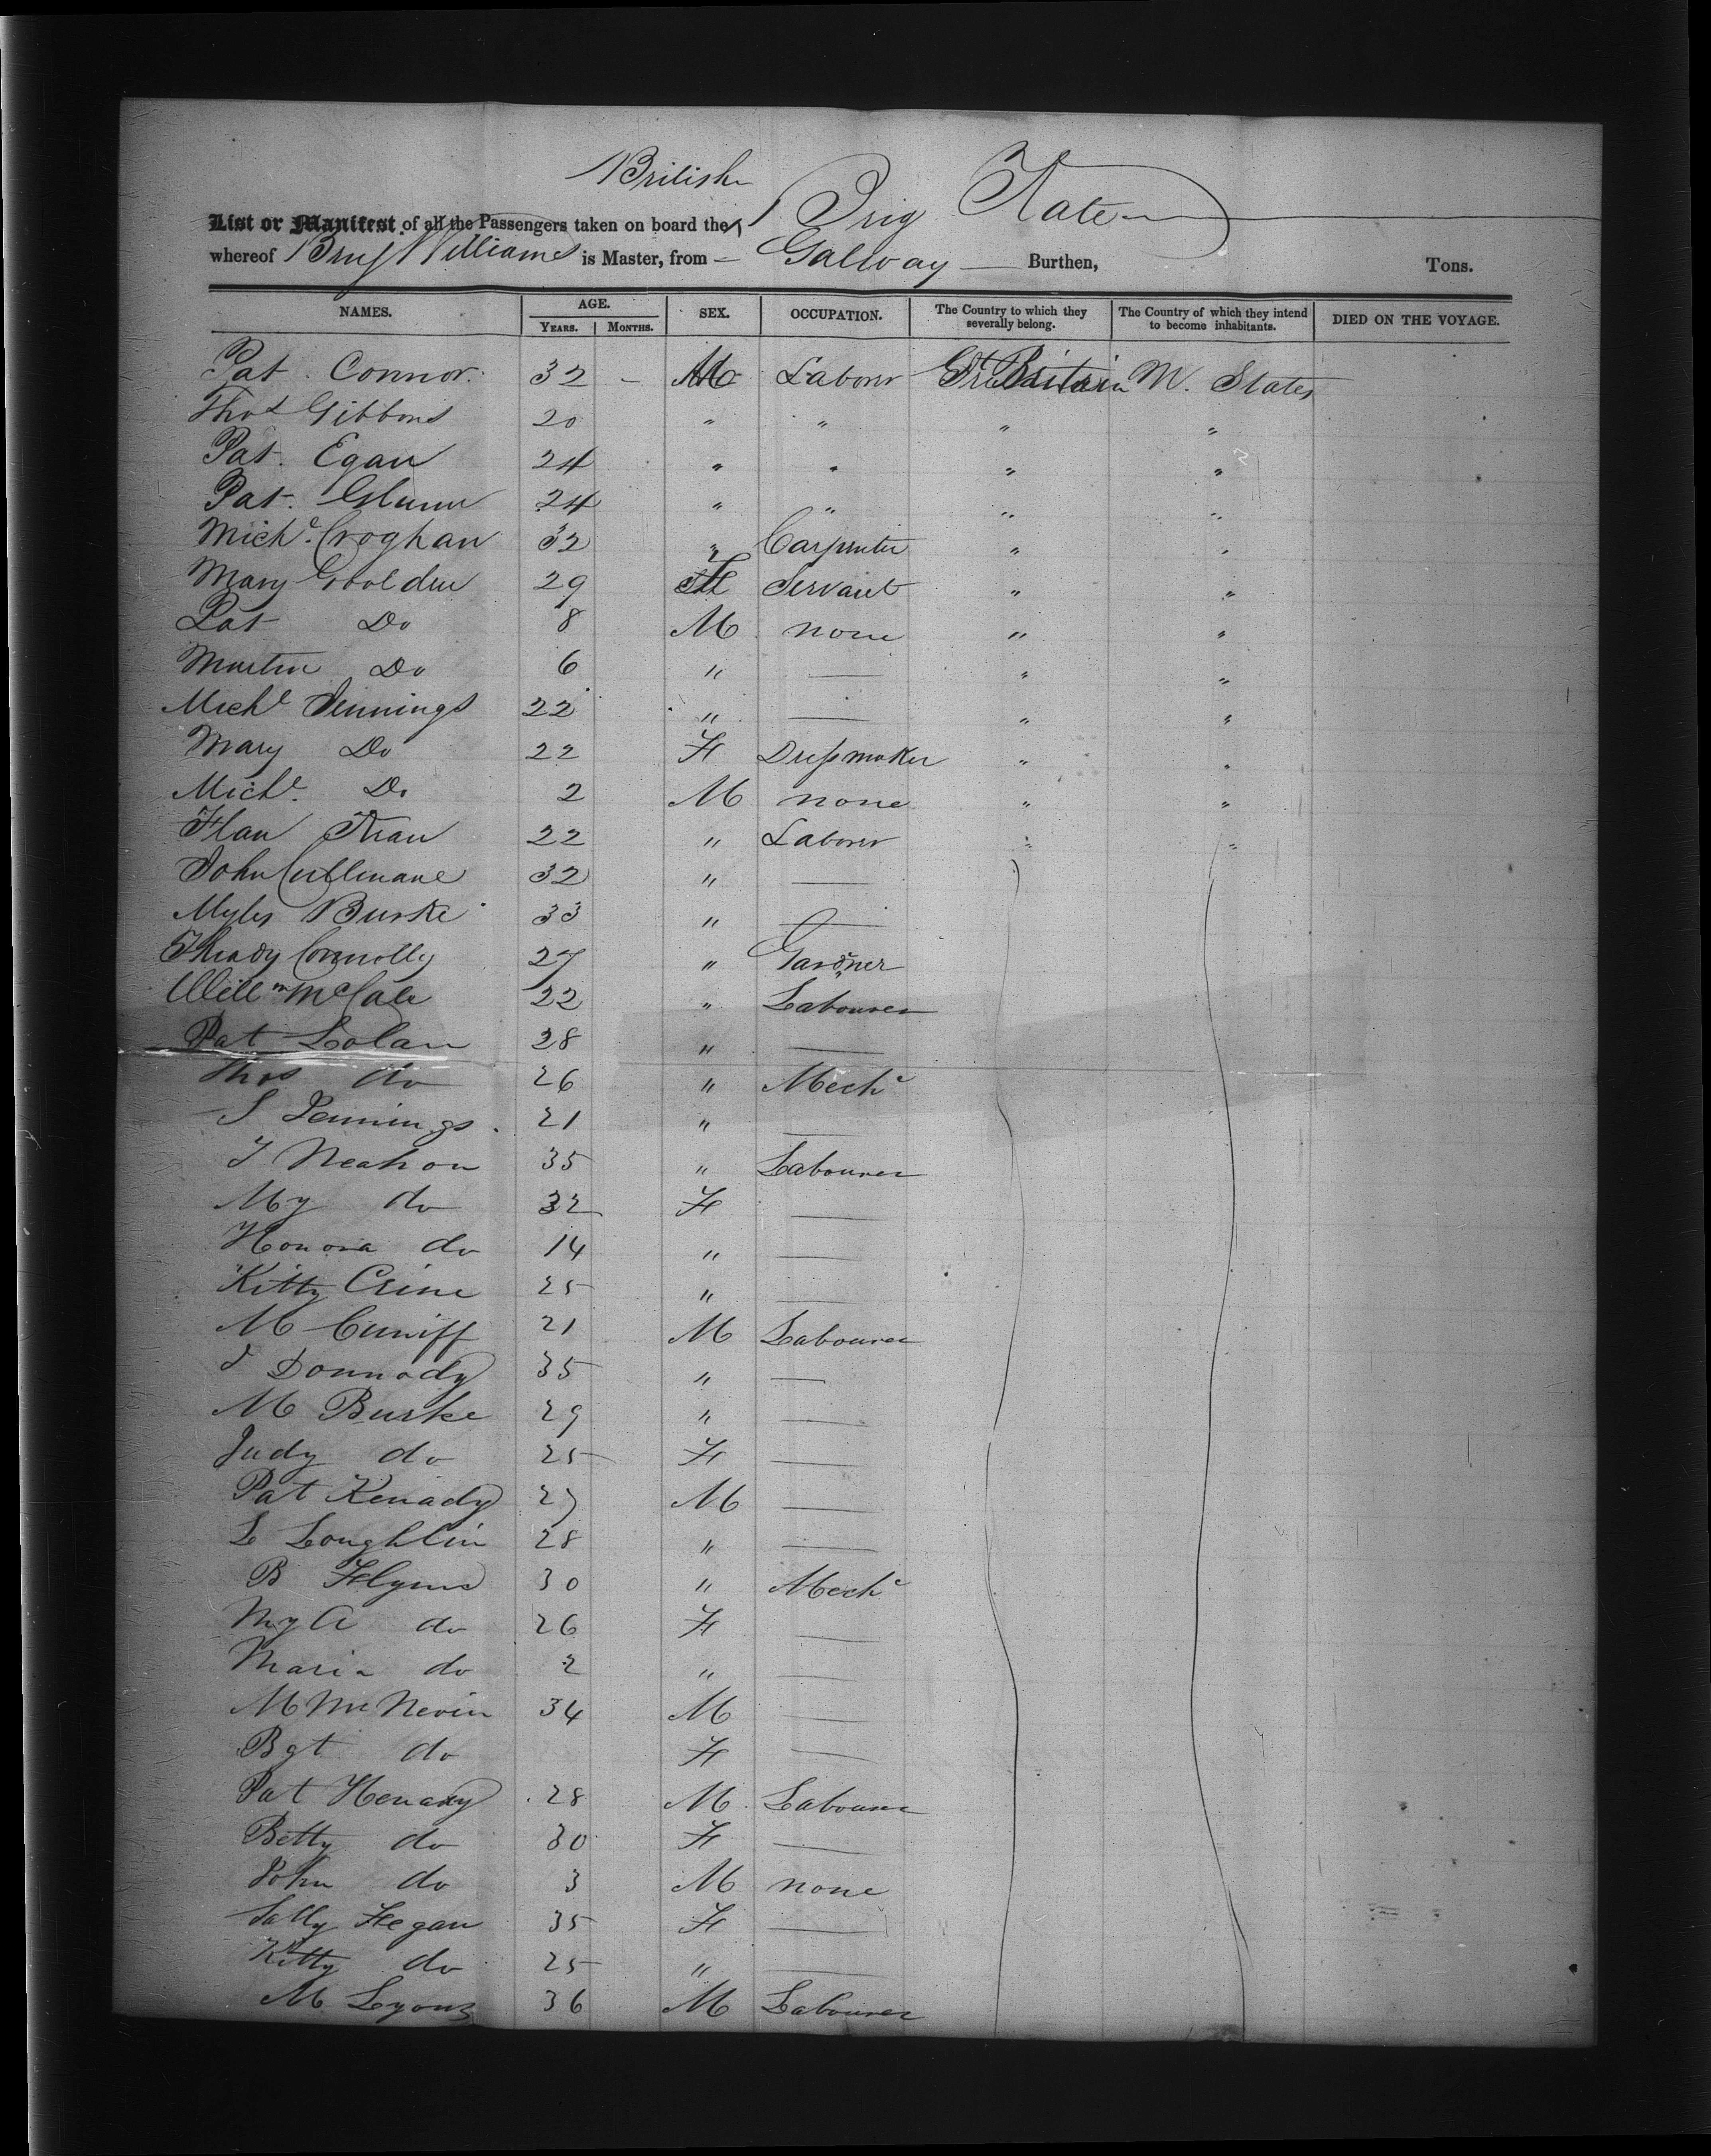 British
List or Manifest of all the Passengers taken on board the Brig Kate
whereof Williams is Master, from — Galway — Burthen, Tons.
NAMES. AGE. SEX. OCCUPATION. The Country to which they severally belong. The Country of which they intend to become inhabitants. DIED ON THE VOYAGE.
YEARS. MONTHS.
Pat. Connor. 32 - M Laborer Gt Britain U. States
Thos Gibbons 20 " " " "
Pat. Egan 24 " " " "
Pat. Glunn 24 " " " "
Michl. Croghan 32 " Carpenter " "
Mary Goolden 29 F Servant " "
Pat Do 8 M none " "
Martin Do 6 " — " "
Michl Jennings 22 " — " "
Mary Do 22 F Dressmaker " "
Michl. Do 2 M none " "
Flan 22 " Laborer " "
John Cullinane 32 " —
Myles Burke 33 " —
Thady Connolly 27 " Gardner
Willm McCale 22 " Labourer
Pat Lolan 28 " —
Thos do 26 " Mechc
S Jennings. 21 " —
J Neahon 35 " Labourer
My do 32 F —
Honora do 14 " —
Kitty Crine 25 " —
M Cuniff 21 M Labourer
J Donnody 35 " —
M Burke 29 " —
Judy do 25 F —
Pat Kenady 27 M —
L Loughlin 28 " —
B Flynn 30 " Mechc
My A do 26 F —
Maria do 2 " —
M McNevin 34 M —
Bgt do F —
Pat Henany 28 M Labourer
Betty do 30 F —
John do 3 M none
Sally Fegan 35 F —
Kitty do 25 " —
M Lyons 36 M Labourer